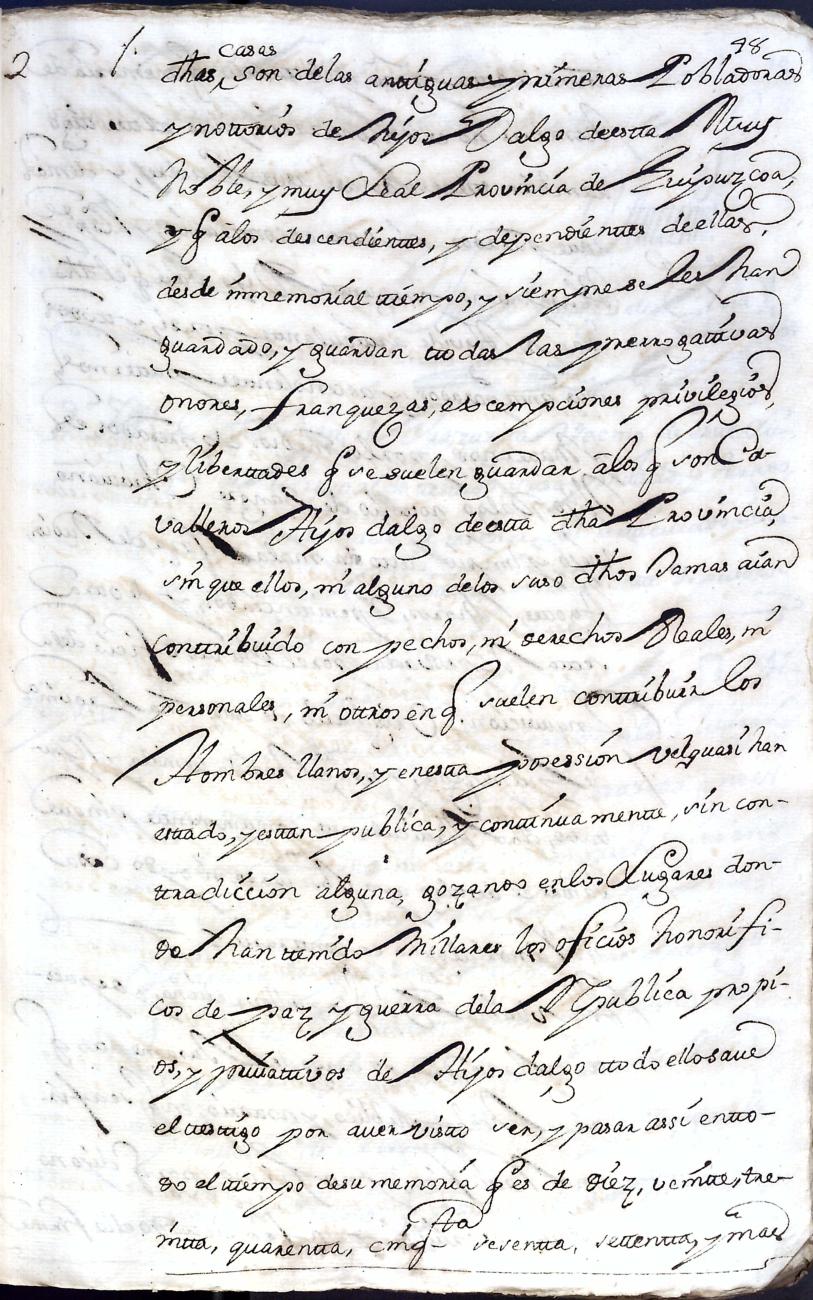 2 1. casas 48
dhas, son delas anttiguas y primeras Pobladoras
y nottorios de Hijos Dalgo de estta Muy
Noble, y muy Leal Provincia de Guipuzcoa,
y q̃ alos descendienttes, y dependienttes de ellas,
desde inmemorial ttiempo, y siempre se les han
guardado, y guardan ttodas las prerrogattivas
onores, franquezas, excempciones privilegios,
y liberttades q̃ se suelen guardar alos q̃ son Ca-
valleros Hijos dalgo de estta dha Provincia,
sin que ellos, ni alguno delos suso dhos Jamas aian
conttribuido con pechos, ni derechos Reales, ni
personales, ni ottros en q̃ suelen conttribuir los
Hombres llanos, y en estta posession velquasi han
esttado, y esttan publica, y conttinuamentte, sin con-
ttradiccion alguna, gozando en los Lugares don-
de han ttenido Millares los oficios honorifi-
cos de paz y guerra dela Rpublica propi-
os, y privattivos de Hijos dalgo ttodo ello save
el ttesttigo por aver vistto ser, y pasar assi en tto-
do el ttiempo de su memoria q̃ es de diez, veintte, tre-
intta, quarentta, cinq.tta sesentta, settentta, y mas